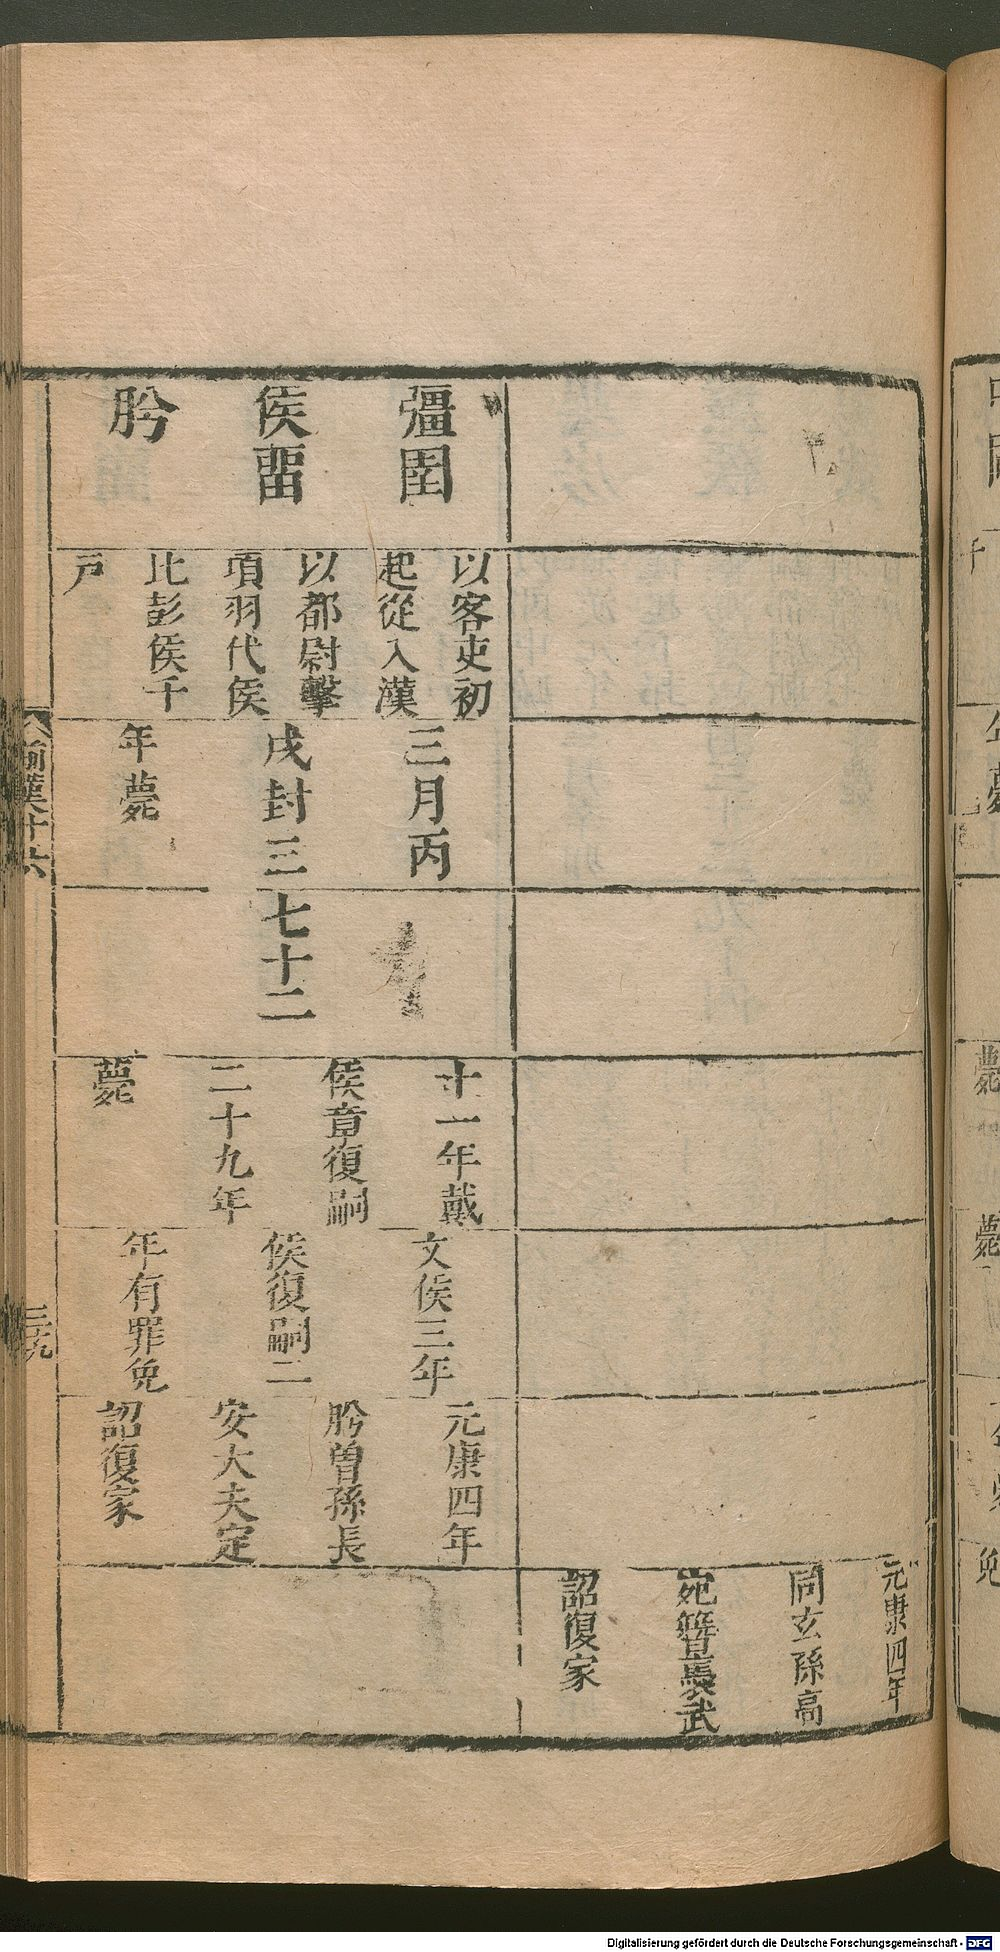 元康四年
同玄孫高
宛簪褭武
詔復家
彊圉
侯畱
肹
以客吏初
起從入漢
以都尉擊
項羽代侯
比彭侯千
戶
三月丙
戌封三
年薨
七十二
十一年戴
侯章復嗣
二十九年
薨
文侯三年
侯復嗣二
年有罪免
元康四年
肹曾孫長
安大夫定
詔復家
前漢十六
三十九
Digitalisierung gefördert durch die Deutsche Forschungsgemeinschaft - DFG